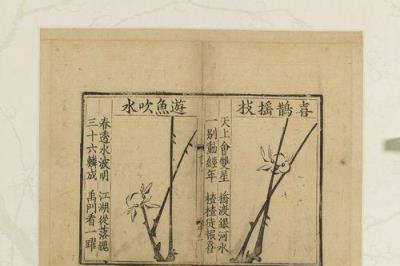 喜鵲搖枝
天上會雙星　橋渡銀河水
一別動經年　楂楂徒報喜
遊魚吹水
春透水波明　江湖從落魄
三十六鱗成　禹門看一躍